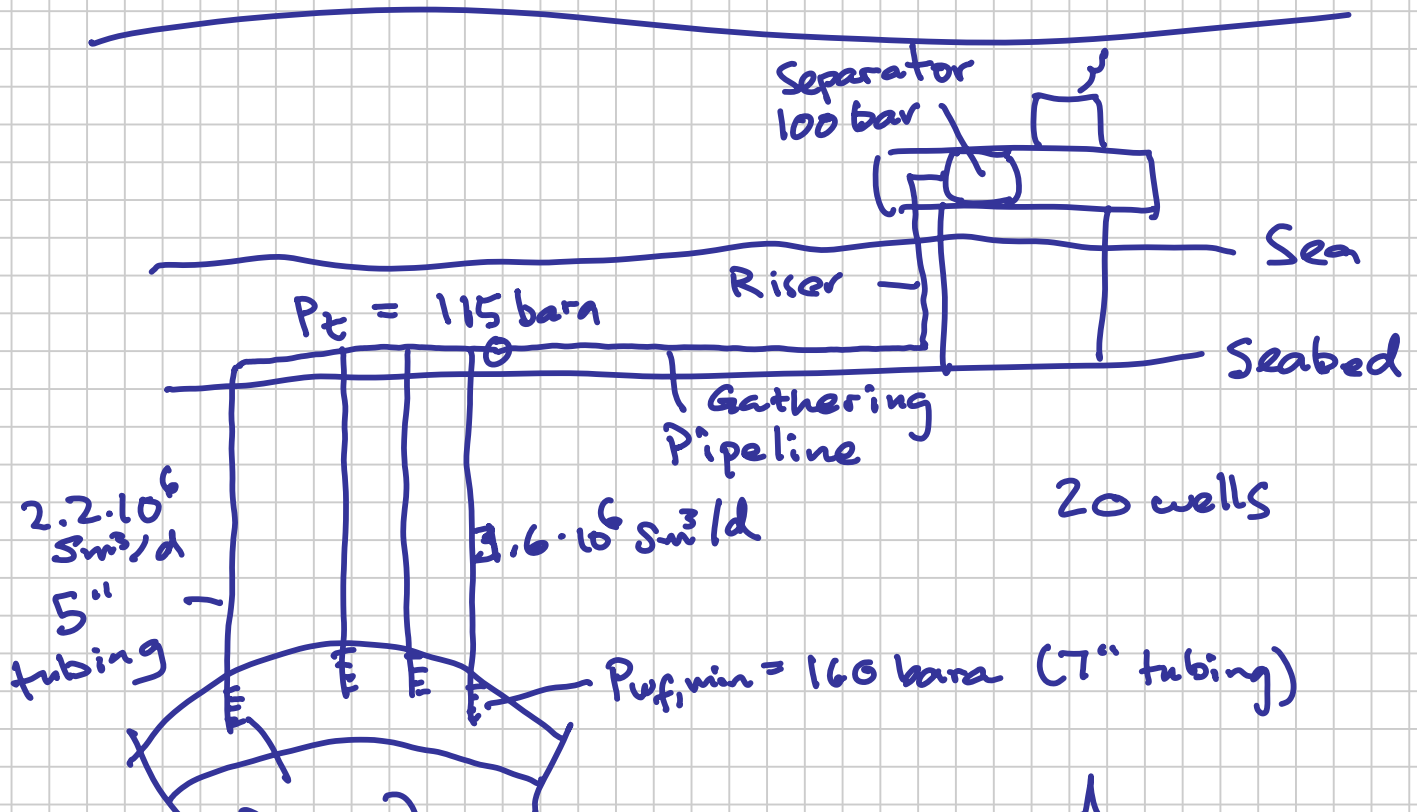 Separator
100 bar
Sea
Riser
Pt = 115 bara
Seabed
Gathering
Pipeline
20 wells
2.2.10⁶
Sm³/d
.6·10⁶ Sm³/d
5"
tubing
Pwf,min = 160 bara (7" tubing)